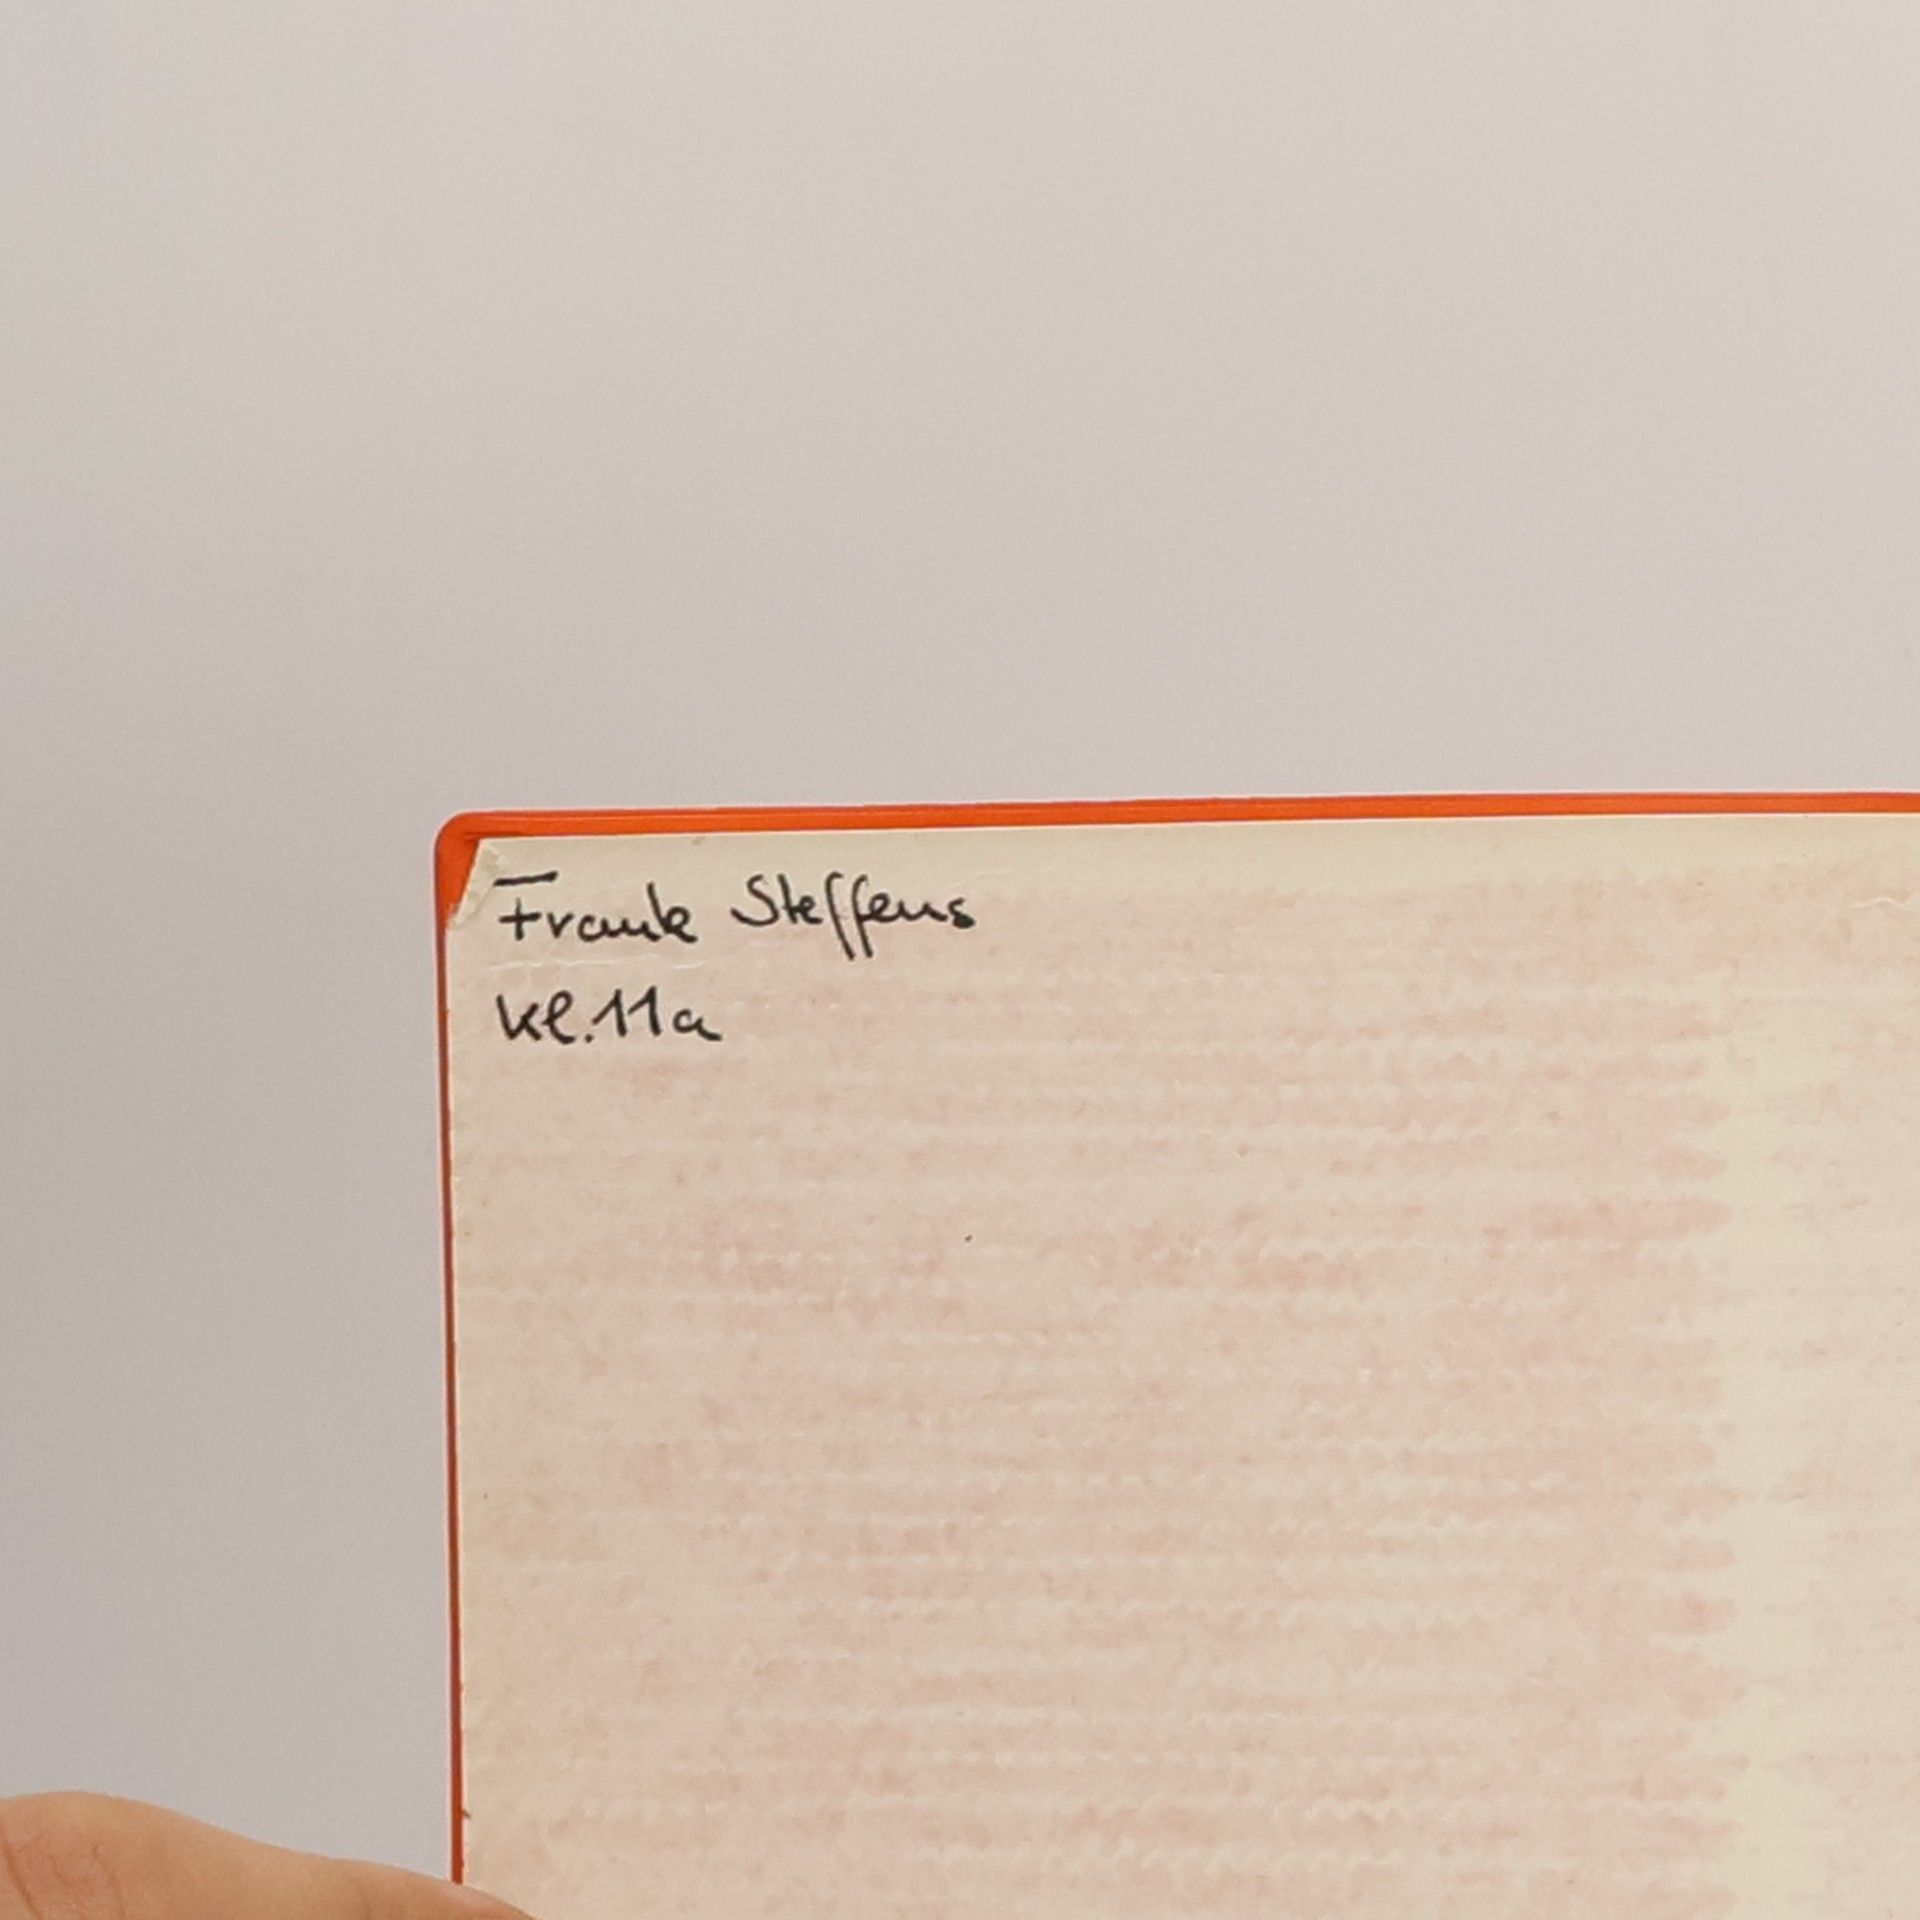 Frank Steffens
Kl. 11a